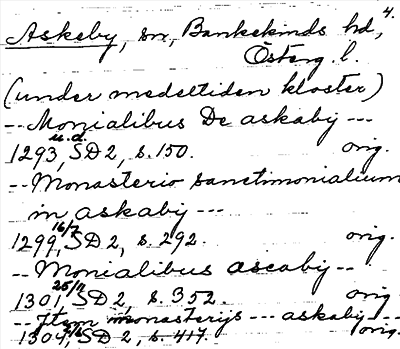 4.
Askeby, sn, Bankekinds hd,
Österg. l.
(under medeltiden kloster)
-- Monialibus De askabÿ ---
1293, u.d. SD 2, s. 150. orig.
-- Monasterio sanctimonialium
in askabÿ ---
1299, 16/7 SD 2, s. 292. orig.
-- Monialibus ascabÿ --
1301, SD 2, s. 352. orig
-- Item monasterÿs --- askabÿ --
1304, SD 2, s. 417. orig.